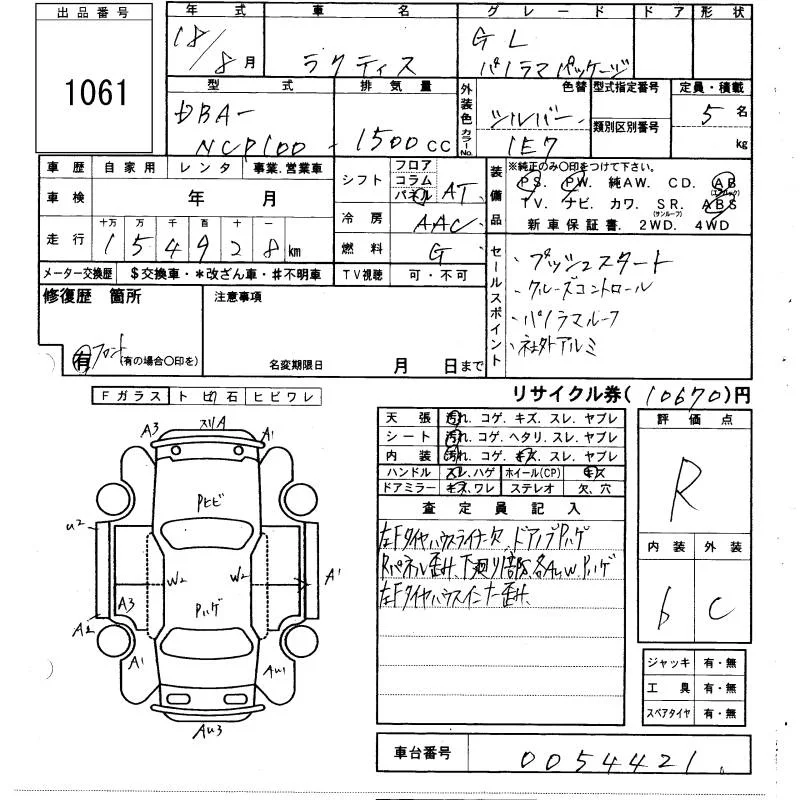 出品番号
1061
年式
18/8月
車名
ラクティス
グレード
G L
パノラマパッケージ
ドア
形状
型式
DBA-
NCP100
排気量
1500cc
外装色
色替
シルバー
カラーNo.
1E7
型式指定番号
類別区別番号
定員・積載
5名
kg
車歴 自家用 レンタ 事業.営業車
車検 年 月
走行
十万 万 千 百 十 一
154928 km
メーター交換歴 $交換車・*改ざん車・#不明車
シフト
フロア
コラム
パネル
AT
冷房
AAC
燃料
G
TV視聴 可・不可
装備品
※純正のみ〇印をつけて下さい。
PS. PW. 純AW. CD. AB
(エアバック)
TV. ナビ. カワ. SR. ABS
(サンルーフ)
新車保証書. 2WD. 4WD
セールスポイント
・プッシュスタート
・クルーズコントロール
・パノラマルーフ
・社外アルミ
修復歴 箇所
有 フロント
(有の場合〇印を)
注意事項
名変期限日 月 日まで
リサイクル券(10670)円
Fガラス トビ石 ヒビワレ
A3
スリA
A1
Pヒビ
U2
W2
W2
A1
A3
Pハゲ
A2
A1
AU1
AU3
天張 汚れ. コゲ. キズ. スレ. ヤブレ
シート 汚れ. コゲ. ヘタリ. スレ. ヤブレ
内装 汚れ. コゲ. キズ. スレ. ヤブレ
ハンドル スレ.ハゲ ホイール(CP) キズ
ドアミラー キズ.ワレ ステレオ 欠、穴
査定員記入
左Fタイヤハウスライナー欠、ドアノブPハゲ
Rパネル歪ミ、下廻り部分各AUW、Pハゲ
左Fタイヤハウスインナー歪ミ、
評価点
R
内装 外装
b C
ジャッキ 有・無
工具 有・無
スペアタイヤ 有・無
車台番号
0054421